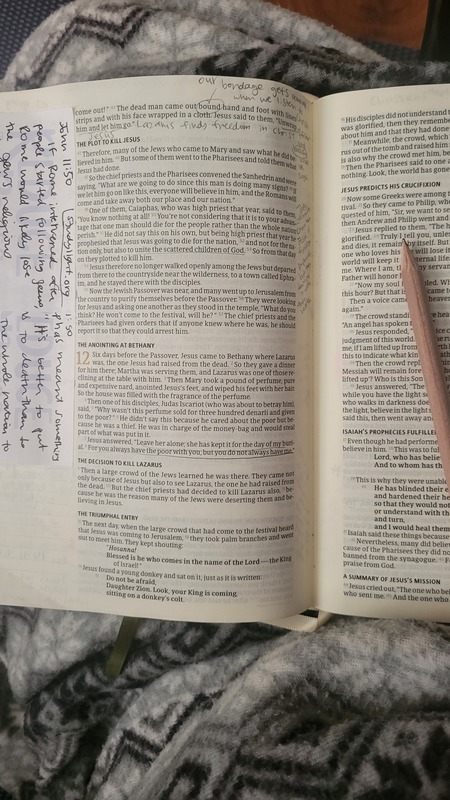 our bondage gets
when we
come out!" 44 The dead man came out bound hand and foot with linen
strips and with his face wrapped in a cloth. Jesus said to them,
him and let him go." Lazarus finds freedom in
THE PLOT TO KILL JESUS
45 Therefore, many of the Jews who came to Mary and saw what he did be-
lieved in him. 46 But some of them went to the Pharisees and told them what
Jesus had done.
47 So the chief priests and the Pharisees convened the Sanhedrin and were
saying, "What are we going to do since this man is doing many signs? 48 If
we let him go on like this, everyone will believe in him, and the Romans will
come and take away both our place and our nation."
49 One of them, Caiaphas, who was high priest that year, said to them,
"You know nothing at all! 50 You're not considering that it is to your advan-
tage that one man should die for the people rather than the whole nation
perish." 51 He did not say this on his own, but being high priest that year he
prophesied that Jesus was going to die for the nation, 52 and not for the na-
tion only, but also to unite the scattered children of God. 53 So from that day
on they plotted to kill him.
54 Jesus therefore no longer walked openly among the Jews but departed
from there to the countryside near the wilderness, to a town called Ephra-
im, and he stayed there with the disciples.
55 Now the Jewish Passover was near, and many went up to Jerusalem from
the country to purify themselves before the Passover. 56 They were looking
for Jesus and asking one another as they stood in the temple, "What do you
think? He won't come to the festival, will he?" 57 The chief priests and the
Pharisees had given orders that if anyone knew where he was, he should
report it so that they could arrest him.
THE ANOINTING AT BETHANY
12 Six days before the Passover, Jesus came to Bethany where Lazarus
was, the one Jesus had raised from the dead. 2 So they gave a dinner
for him there; Martha was serving them, and Lazarus was one of those re-
clining at the table with him. 3 Then Mary took a pound of perfume, pure
and expensive nard, anointed Jesus's feet, and wiped his feet with her hair.
So the house was filled with the fragrance of the perfume.
4 Then one of his disciples, Judas Iscariot (who was about to betray him),
said, 5 "Why wasn't this perfume sold for three hundred denarii and given
to the poor?" 6 He didn't say this because he cared about the poor but be-
cause he was a thief. He was in charge of the money-bag and would steal
part of what was put in it.
7 Jesus answered, "Leave her alone; she has kept it for the day of my buri-
al. 8 For you always have the poor with you, but you do not always have me."
THE DECISION TO KILL LAZARUS
9 Then a large crowd of the Jews learned he was there. They came not
only because of Jesus but also to see Lazarus, the one he had raised from
the dead. 10 But the chief priests had decided to kill Lazarus also, 11 be-
cause he was the reason many of the Jews were deserting them and be-
lieving in Jesus.
THE TRIUMPHAL ENTRY
12 The next day, when the large crowd that had come to the festival heard
that Jesus was coming to Jerusalem, 13 they took palm branches and went
out to meet him. They kept shouting:
"Hosanna!
Blessed is he who comes in the name of the Lord — the King
of Israel!"
14 Jesus found a young donkey and sat on it, just as it is written:
15 Do not be afraid,
Daughter Zion. Look, your King is coming,
sitting on a donkey's colt.
John 11:50
if Rome intervened
people started following Jesus
Rome would likely lose
the
It's better to put
to death than to
the whole nation to
16 His disciples did not understand
was glorified, then they remembe
about him and that they had done
17 Meanwhile, the crowd, which
rus out of the tomb and raised him
is also why the crowd met him, be
19 Then the Pharisees said to one
nothing. Look, the world has gone
JESUS PREDICTS HIS CRUCIFIXION
20 Now some Greeks were among
tival. 21 So they came to Philip, who
quested of him, "Sir, we want to se
then Andrew and Philip went and
23 Jesus replied to them, "The h
glorified. 24 Truly I tell you, unle
and dies, it remains by itself. But
one who loves his
world will keep
me. Where I am, t
Father will honor
27 "Now my soul
this hour? But that is
Then a voice came
again."
29 The crowd standi
"An angel has spoken t
30 Jesus responded,
judgment of this world.
me, if I am lifted up from
this to indicate what kin
34 Then the crowd repl
Messiah will remain fore
lifted up'? Who is this Son
35 Jesus answered, "The
while you have the light s
who walks in darkness doe
the light, believe in the light s
said this, then went away and
ISAIAH'S PROPHECIES FULFILLE
37 Even though he had performe
believe in him. 38 This was to fulf
Lord, who has belie
And to whom has th
39 This is why they were unabl
40 He has blinded their e
and hardened their he
so that they would not
or understand with th
and turn,
and I would heal them
41 Isaiah said these things because
42 Nevertheless, many did believe
cause of the Pharisees they did no
banned from the synagogue. 43 F
praise from God.
A SUMMARY OF JESUS'S MISSION
44 Jesus cried out, "The one who bel
who sent me. 45 And the one who